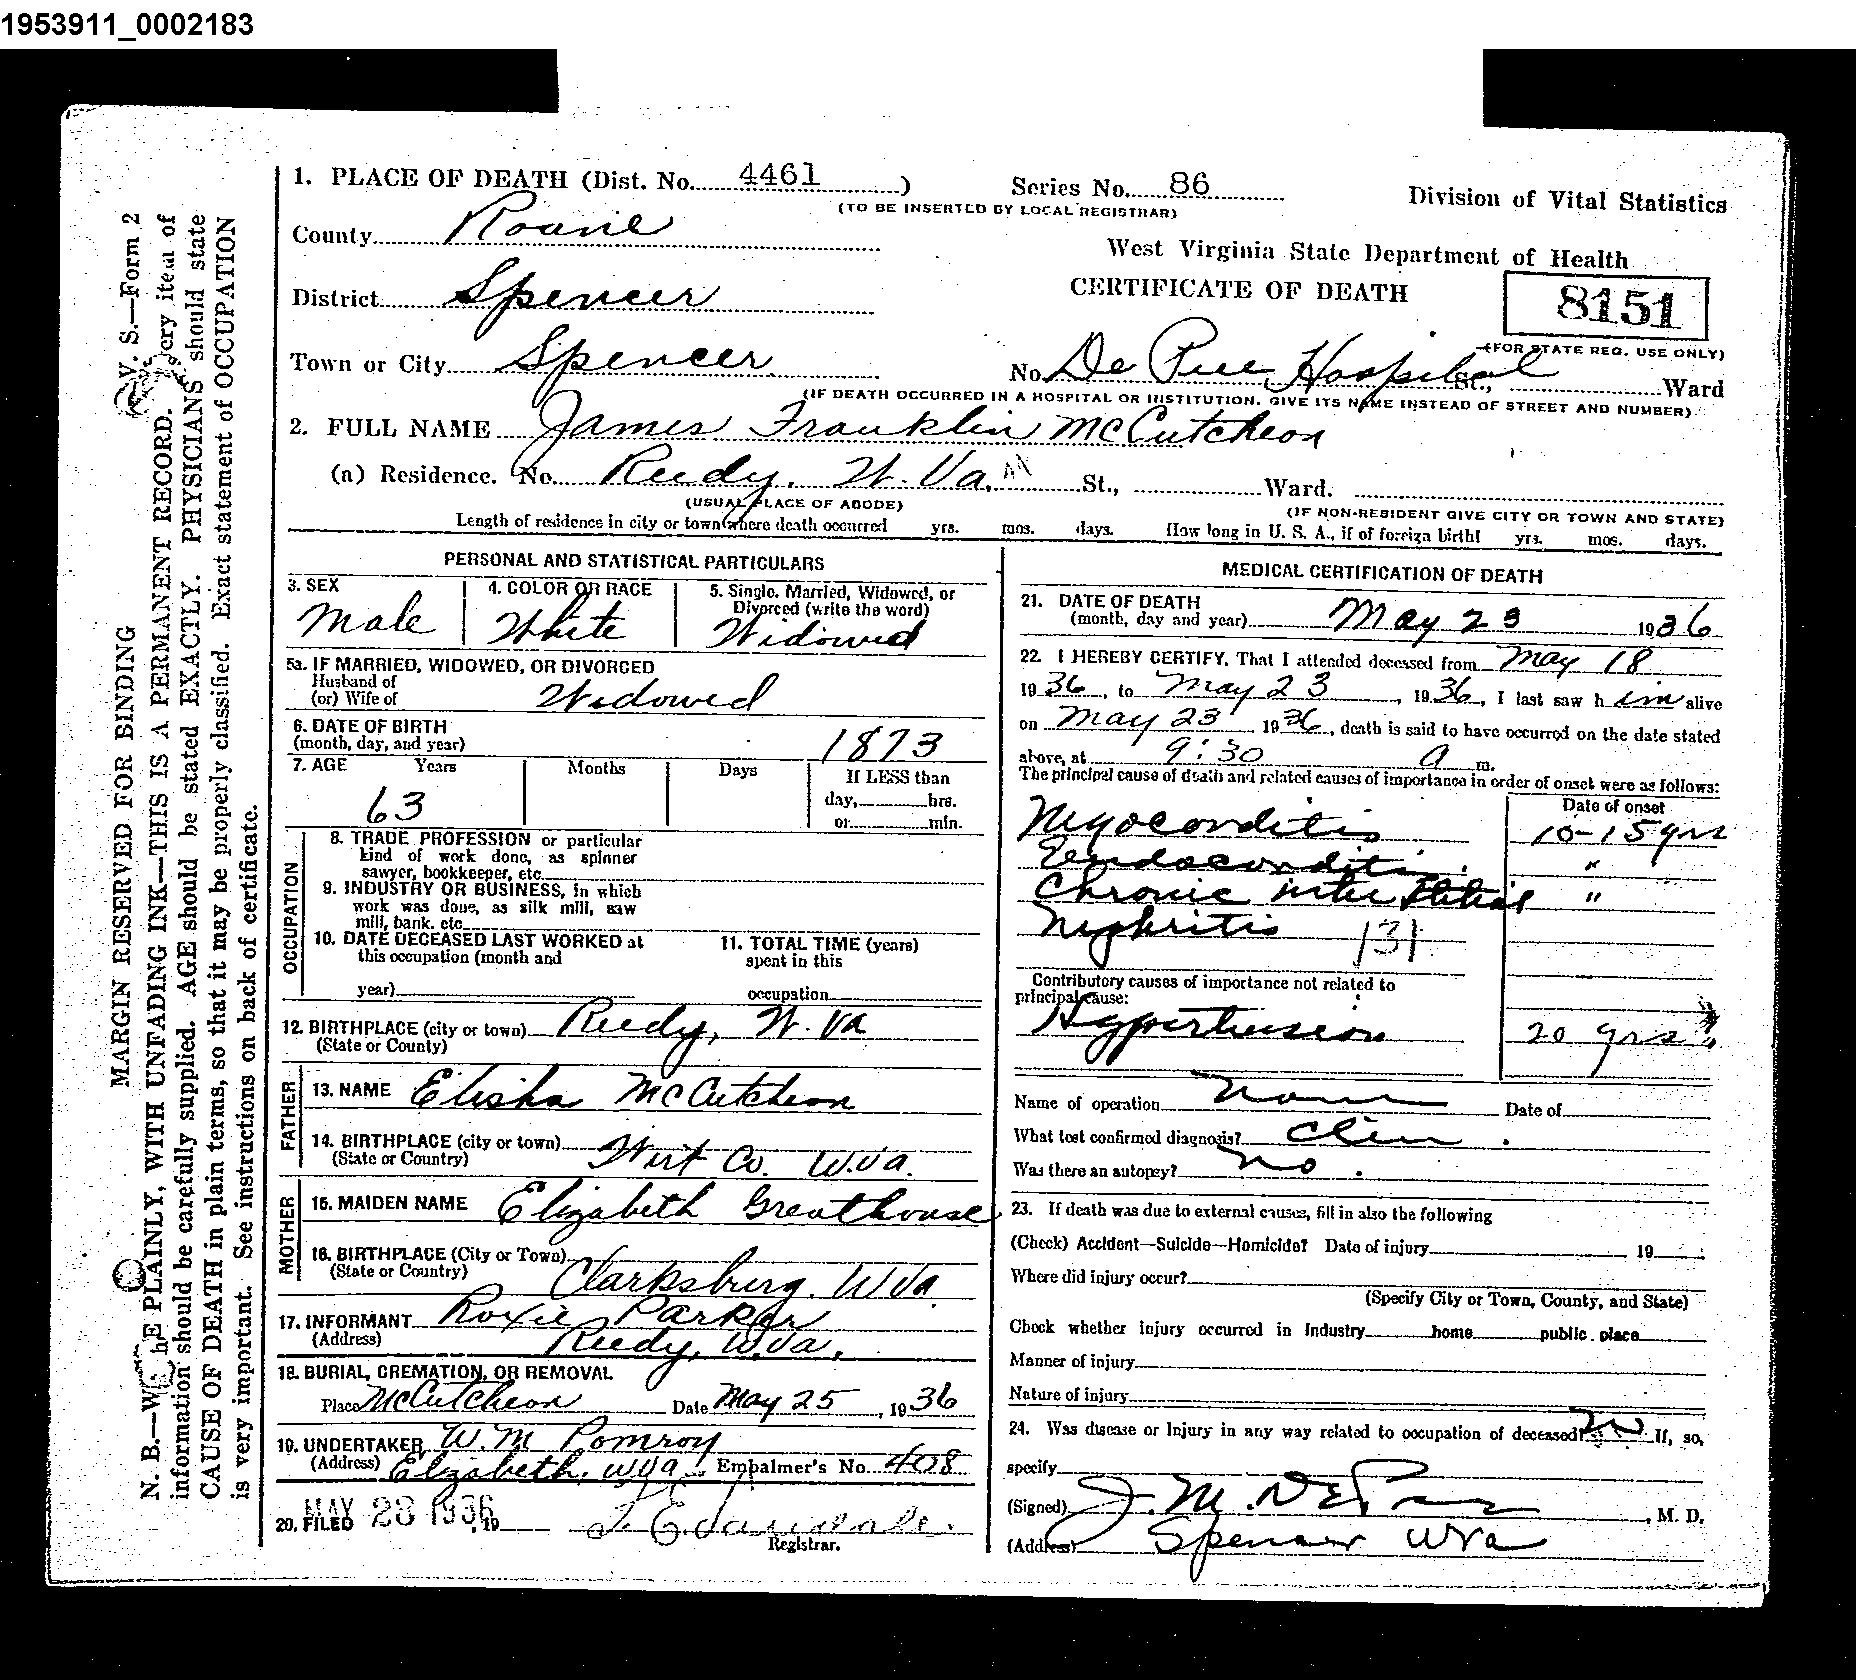 1953911_0002183
1. PLACE OF DEATH (Dist. No. 4461 ) Series No. 86
(TO BE INSERTED BY LOCAL REGISTRAR)
Division of Vital Statistics
County Roane
West Virginia State Department of Health
CERTIFICATE OF DEATH
8151
(FOR STATE REG. USE ONLY)
District Spencer
Town or City Spencer No. De Pue Hospital St., Ward
(IF DEATH OCCURRED IN A HOSPITAL OR INSTITUTION, GIVE ITS NAME INSTEAD OF STREET AND NUMBER)
2. FULL NAME James Franklin McCutcheon
(a) Residence. No. Reedy, W. Va. St., Ward.
(USUAL PLACE OF ABODE) (IF NON-RESIDENT GIVE CITY OR TOWN AND STATE)
Length of residence in city or town where death occurred yrs. mos. days. How long in U. S. A., if of foreign birth? yrs. mos. days.
PERSONAL AND STATISTICAL PARTICULARS
3. SEX 4. COLOR OR RACE 5. Single, Married, Widowed, or
Divorced (write the word)
Male White Widowed
5a. IF MARRIED, WIDOWED, OR DIVORCED
Husband of
(or) Wife of Widowed
6. DATE OF BIRTH
(month, day, and year) 1873
7. AGE Years Months Days If LESS than
63 day, hrs.
or min.
OCCUPATION
8. TRADE PROFESSION or particular
kind of work done, as spinner
sawyer, bookkeeper, etc
9. INDUSTRY OR BUSINESS, in which
work was done, as silk mill, saw
mill, bank, etc
10. DATE DECEASED LAST WORKED at
this occupation (month and
year)
11. TOTAL TIME (years)
spent in this
occupation
12. BIRTHPLACE (city or town) Reedy, W. Va
(State or County)
FATHER
13. NAME Elisha McCutcheon
14. BIRTHPLACE (city or town) Wirt Co. W.Va.
(State or Country)
MOTHER
15. MAIDEN NAME Elizabeth Greathouse
16. BIRTHPLACE (City or Town) Clarksburg, W Va.
(State or Country)
17. INFORMANT Roxie Parker
(Address) Reedy, W.Va.
18. BURIAL, CREMATION, OR REMOVAL
Place McCutcheon Date May 25, 1936
19. UNDERTAKER W.M Pomroy
(Address) Elizabeth, W Va. Embalmer's No. 408
20. FILED MAY 28 1936, 19
Registrar.
MEDICAL CERTIFICATION OF DEATH
21. DATE OF DEATH
(month, day and year) May 23 1936
22. I HEREBY CERTIFY, That I attended deceased from May 18
1936, to May 23, 1936, I last saw him alive
on May 23 1936, death is said to have occurred on the date stated
above, at 9:30 a m.
The principal cause of death and related causes of importance in order of onset were as follows:
Date of onset
Myocarditis 10-15 yrs
Endocarditis "
Chronic interstitial "
Nephritis 131
Contributory causes of importance not related to
principal cause:
Hypertension 20 yrs
Name of operation None Date of
What test confirmed diagnosis? Clin.
Was there an autopsy? No.
23. If death was due to external causes, fill in also the following
(Check) Accident—Suicide—Homicide? Date of injury 19
Where did injury occur?
(Specify City or Town, County, and State)
Check whether injury occurred in Industry home public place
Manner of injury
Nature of injury
24. Was disease or Injury in any way related to occupation of deceased? No If, so,
specify
(Signed) J. M. DePue, M. D.
(Address) Spencer W Va
V. S.—Form 2
MARGIN RESERVED FOR BINDING
N. B.—W E PLAINLY, WITH UNFADING INK—THIS IS A PERMANENT RECORD. ery item of
information should be carefully supplied. AGE should be stated EXACTLY. PHYSICIANS should state
CAUSE OF DEATH in plain terms, so that it may be properly classified. Exact statement of OCCUPATION
is very important. See instructions on back of certificate.